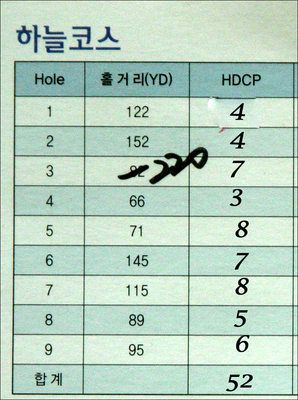 하늘코스
Hole 홀 거리(YD) HDCP
1 122 4
2 152 4
3 82 220 7
4 66 3
5 71 8
6 145 7
7 115 8
8 89 5
9 95 6
합계 52